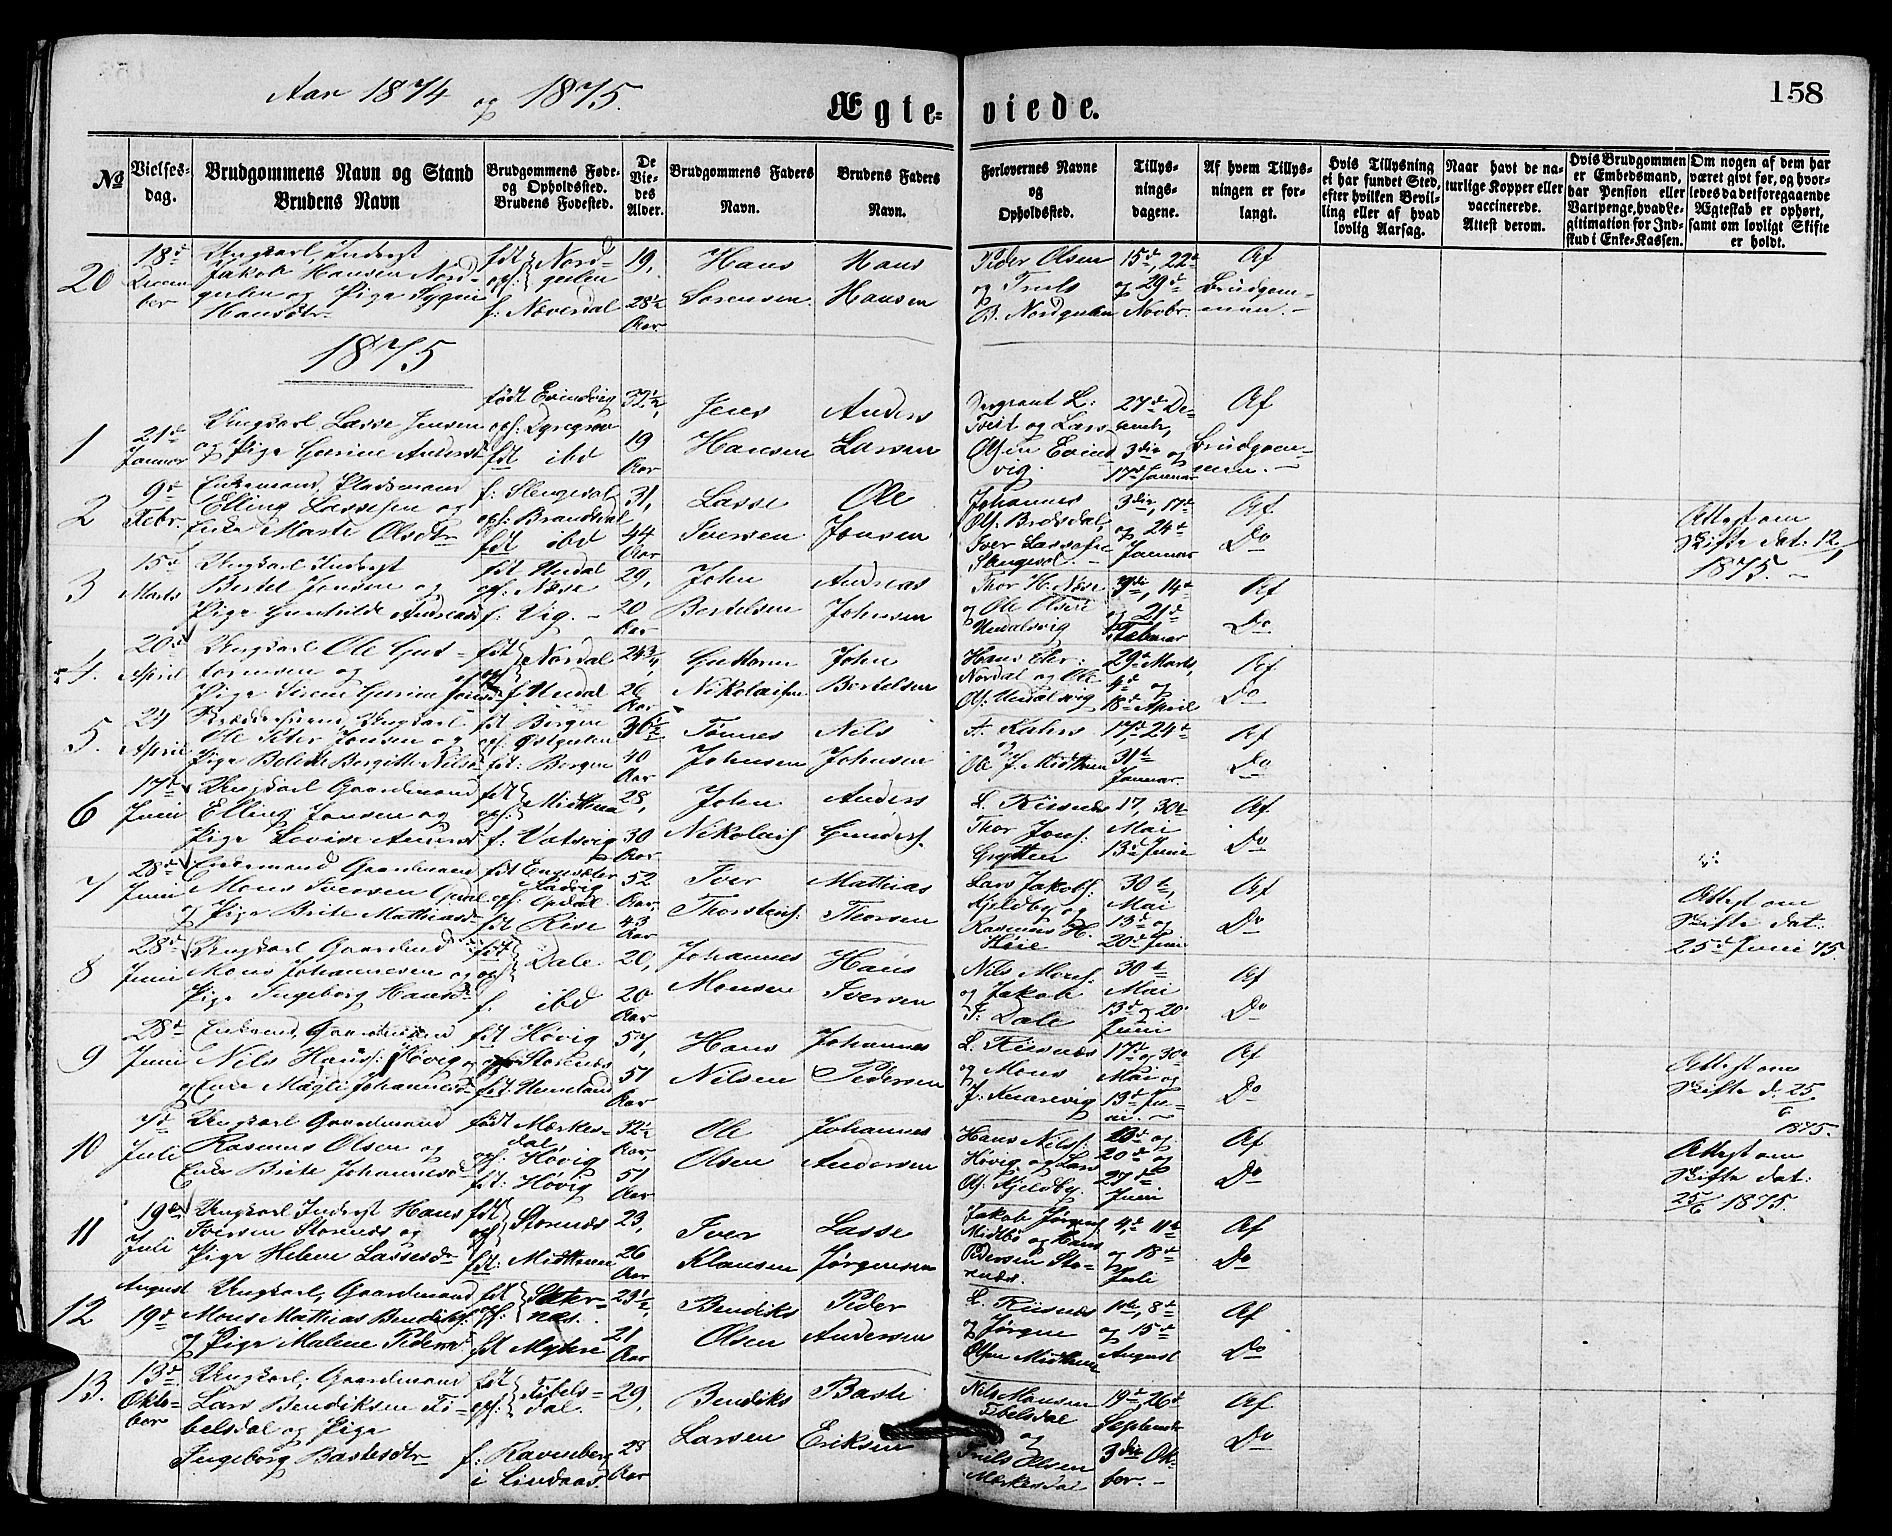 Aar 1874 og 1875.
Ægte- viede.
158
No
Vielses-
dag.
Brudgommens Navn og Stand
Brudens Navn
Brudgommens Føde-
og Opholdssted.
Brudens Fødested.
De
Vie-
des
Alder.
Brudgommens Faders
Navn.
Brudens Faders
Navn.
Forlovernes Navne
og
Opholdssted.
Tillys-
nings-
dagene.
Af hvem Tillys-
ningen er for-
langt.
Hvis Tillysning
ei har fundet Sted,
efter hvilken Bevil-
ling eller af hvad
lovlig Aarsag.
Naar havt de na-
turlige Kopper eller
vaccinerede.
Attest derom.
Hvis Brudgommen
er Embedsmand,
har Pension eller
Vartpenge, hvad Le-
gitimation for Ind-
skud i Enke-Kassen.
Om nogen af dem har
været givt før, og hvor-
ledes da det foregaaende
Ægteskab er ophørt,
samt om lovligt Skifte
er holdt.
20
18de
Decem
ber
Ungkarl, Inderst
Jakob Hansen Nord-
gulen og Pige
Hansdtr
fdt oph: Nord-
gulen
f: Næverdal
19,
28½
Aar
Hans
Sørensen
Hans
Hansen
Peder Olsen
og Truls
Nordgulen
15de, 22de
og 29de
Novbr.
Af
Brudgom-
men. -
1875
1
21de
Januar
Ungkarl Lasse Jensen
og Pige Gurine Andersd
født Evindvig
oph:
fdt ibd
32½,
19
Aar
Jens
Hansen
Anders
Larsen
Sergeant L:
Tveit og Lars
Olsen Evind-
vig.
27de De-
cemb,
3die og
17de Januar
Af
Brudgom-
men. -
2
9de
Febr.
Enkemand, Pladsmand
Elling Lassesen og
Enke Marte Olsdtr
f: Slengesol
oph: Brandsdal
fdt ibd
31,
44
Aar
Lasse
Iversen
Ole
Jonsen
Johannes
Ols: Brosdal,
Iver Lassesen
3die, 17de
og 24de
Januar
Af
Do
Attest om
Skifte dat: 12/1
1875. -
3
15de
Marts
Ungkarl Inderst
Bertel Jonsen og
Pige Gunhilde Andreasd
fdt Undal
oph: Næse
f: Vig. -
29,
20
Aar
John
Bertelsen
Andreas
Johnsen
Thor H. Næse
og Ole Olsen
Undalsvig
14de
og 21de
Februar
Af
Do
4.
20de
April
Ungkarl Ole Gut-
tormsen og
Pige Sirine Gurine Jonsd
fdt oph Nordal
f: Undal
24¾,
26
Aar
Guttorm
Nikolaisen
John
Bertelsen
Hans Chr:
Nordal og Ole
Ols: Undalsvig
29de Marts,
4de og
18de April
Af
Do
5.
24
April
Skræddersvend, Ungkarl
Ole Peter Jonsen og
Pige Bergitte Nilsd
fdt Bergen
oph: Østgulen
fdt: Bergen
36½
40
Aar
Tønnes
Johnsen
Nils
Johnsen
Ole J. Midthun
17de, 24de
31te
Januar
Af
Do
6
17de
Juni
Ungkarl Gaardmand
Elling Jonsen og
Pige Lovise Andersd
fdt oph: Midthun
f: Vatsvig
28,
30
Aar
John
Nikolais.
Anders
L. Riisnæs
Thor Jons:
Grytten
17, 30te
Mai
13de Juni
Af
Do
7
28de
Juni
Enkemand Gaardmand
Mons Iversen Opdal
og Pige Brite Mathiasd
fdt
Ladvig
oph: Opdal
fdt Rise
52
Aar,
43
Aar
Iver
Thorsteins:
Mathias
Thorsen
Lars Jakobs:
Kjeldby og
Rasmus H.
Høie
30te,
Mai
13de og
20de Juni
Af
Do
Attest om
Skifte dat.
25de Juni 75.
8
28de
Juni
Ungkarl Gaardmd
Mons Johannesen og
Pige Ingeborg Hansd
fdt oph Dale
f. ibd
20,
20
Aar
Johannes
Monsen
Hans
Iversen
Nils Mons:
og Jakob
J: Dale
30te
Mai
13de og 20
Juni
Af
Do
9
28de
Juni
Enkemd, Gaardmand
Nils Hans: Høvig
og Enke Magli Johannesd
fdt Høvig
oph Storenæs
fdt. Hemeland
57,
51
Aar
Hans
Nilsen
Johannes
Pedersen
L. Riisnæs
og Mons
J: Knarvig
17de og 30te
Mai og
13de Ju-
ni. -
Af
Do
Attest om
Skifte d. 25/6
1875.
10
7de
Juli
Ungkarl Gaardmand
Rasmus Olsen og
Enke Brite Johannesd
født Mærkes-
dal,
oph. Høvig
fdt: Høvig
32½
Aar,
51
Aar
Ole
Olsen
Johannes
Andersen
Hans Nils:
Høvig og Lars
Ols: Kjeldby.
13de og
20de og
27de
Juni
Af
Do
Attest om
Skifte dat:
25/6 1875.
11
19de
Juli
Ungkarl Inderst Hans
Iversen Storenæs og
Pige Helene Lassesdr
fdt oph Storenæs
fdt: Midthun
23,
26
Aar
Iver
Klausen
Lasse
Jørgensen
Jakob Jørgens
Midtbø og Hans
Pedersen Sto-
renæs.
4de, 11te
og 18de
Juli
Af
Do
12
August
19de
Ungkarl, Gaardmand
Mons Mathias Bendiks:
og Pige Malene Pedersd
fdt oph: Sæter-
næs.
fdt Myhre
23½,
21
Aar
Bendiks
Olsen
Peder
Andersen
L. Riisnæs
og Jørgen
Olsen Midthun
1ste, 8de
og 15de
August
Af
Do
13.
13de
Okto-
ber
Ungkarl, Gaardmand
Lars Bendiksen Ti-
belsdal og Pige
Ingeborg Bastesdtr
fdt oph: Tibels-
dal.
f: Ravenberg
i Lindaas.
29,
28
Aar
Bendiks
Larsen
Baste
Eriksen
Nils Monsen
Tibelsdal
og
Truls Olsen
Mærkesdal
19de, 26de
Septembr
3die Ok-
tober. -
Af
Do